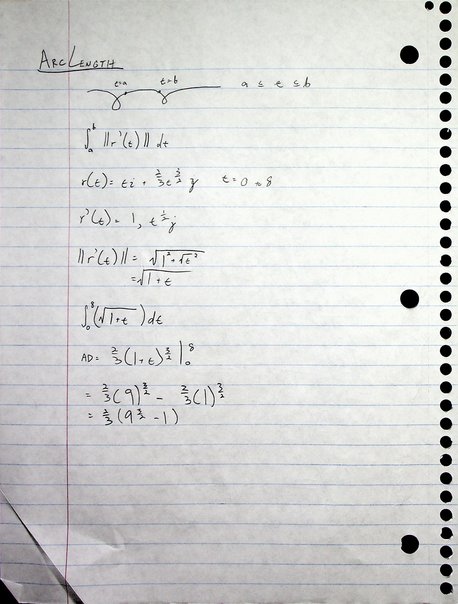 ARC LENGTH
t=a t=b a ≤ t ≤ b
∫ₐᵇ ||r'(t)|| dt
r(t) = ti + 2/3 t^(3/2) j t=0 to 8
r'(t) = 1, t^(1/2) j
||r'(t)|| = √(1² + √t²)
= √(1+t)
∫₀⁸ (√(1+t)) dt
AD = 2/3 (1+t)^(3/2) |₀⁸
= 2/3 (9)^(3/2) - 2/3 (1)^(3/2)
= 2/3 (9^(3/2) - 1)